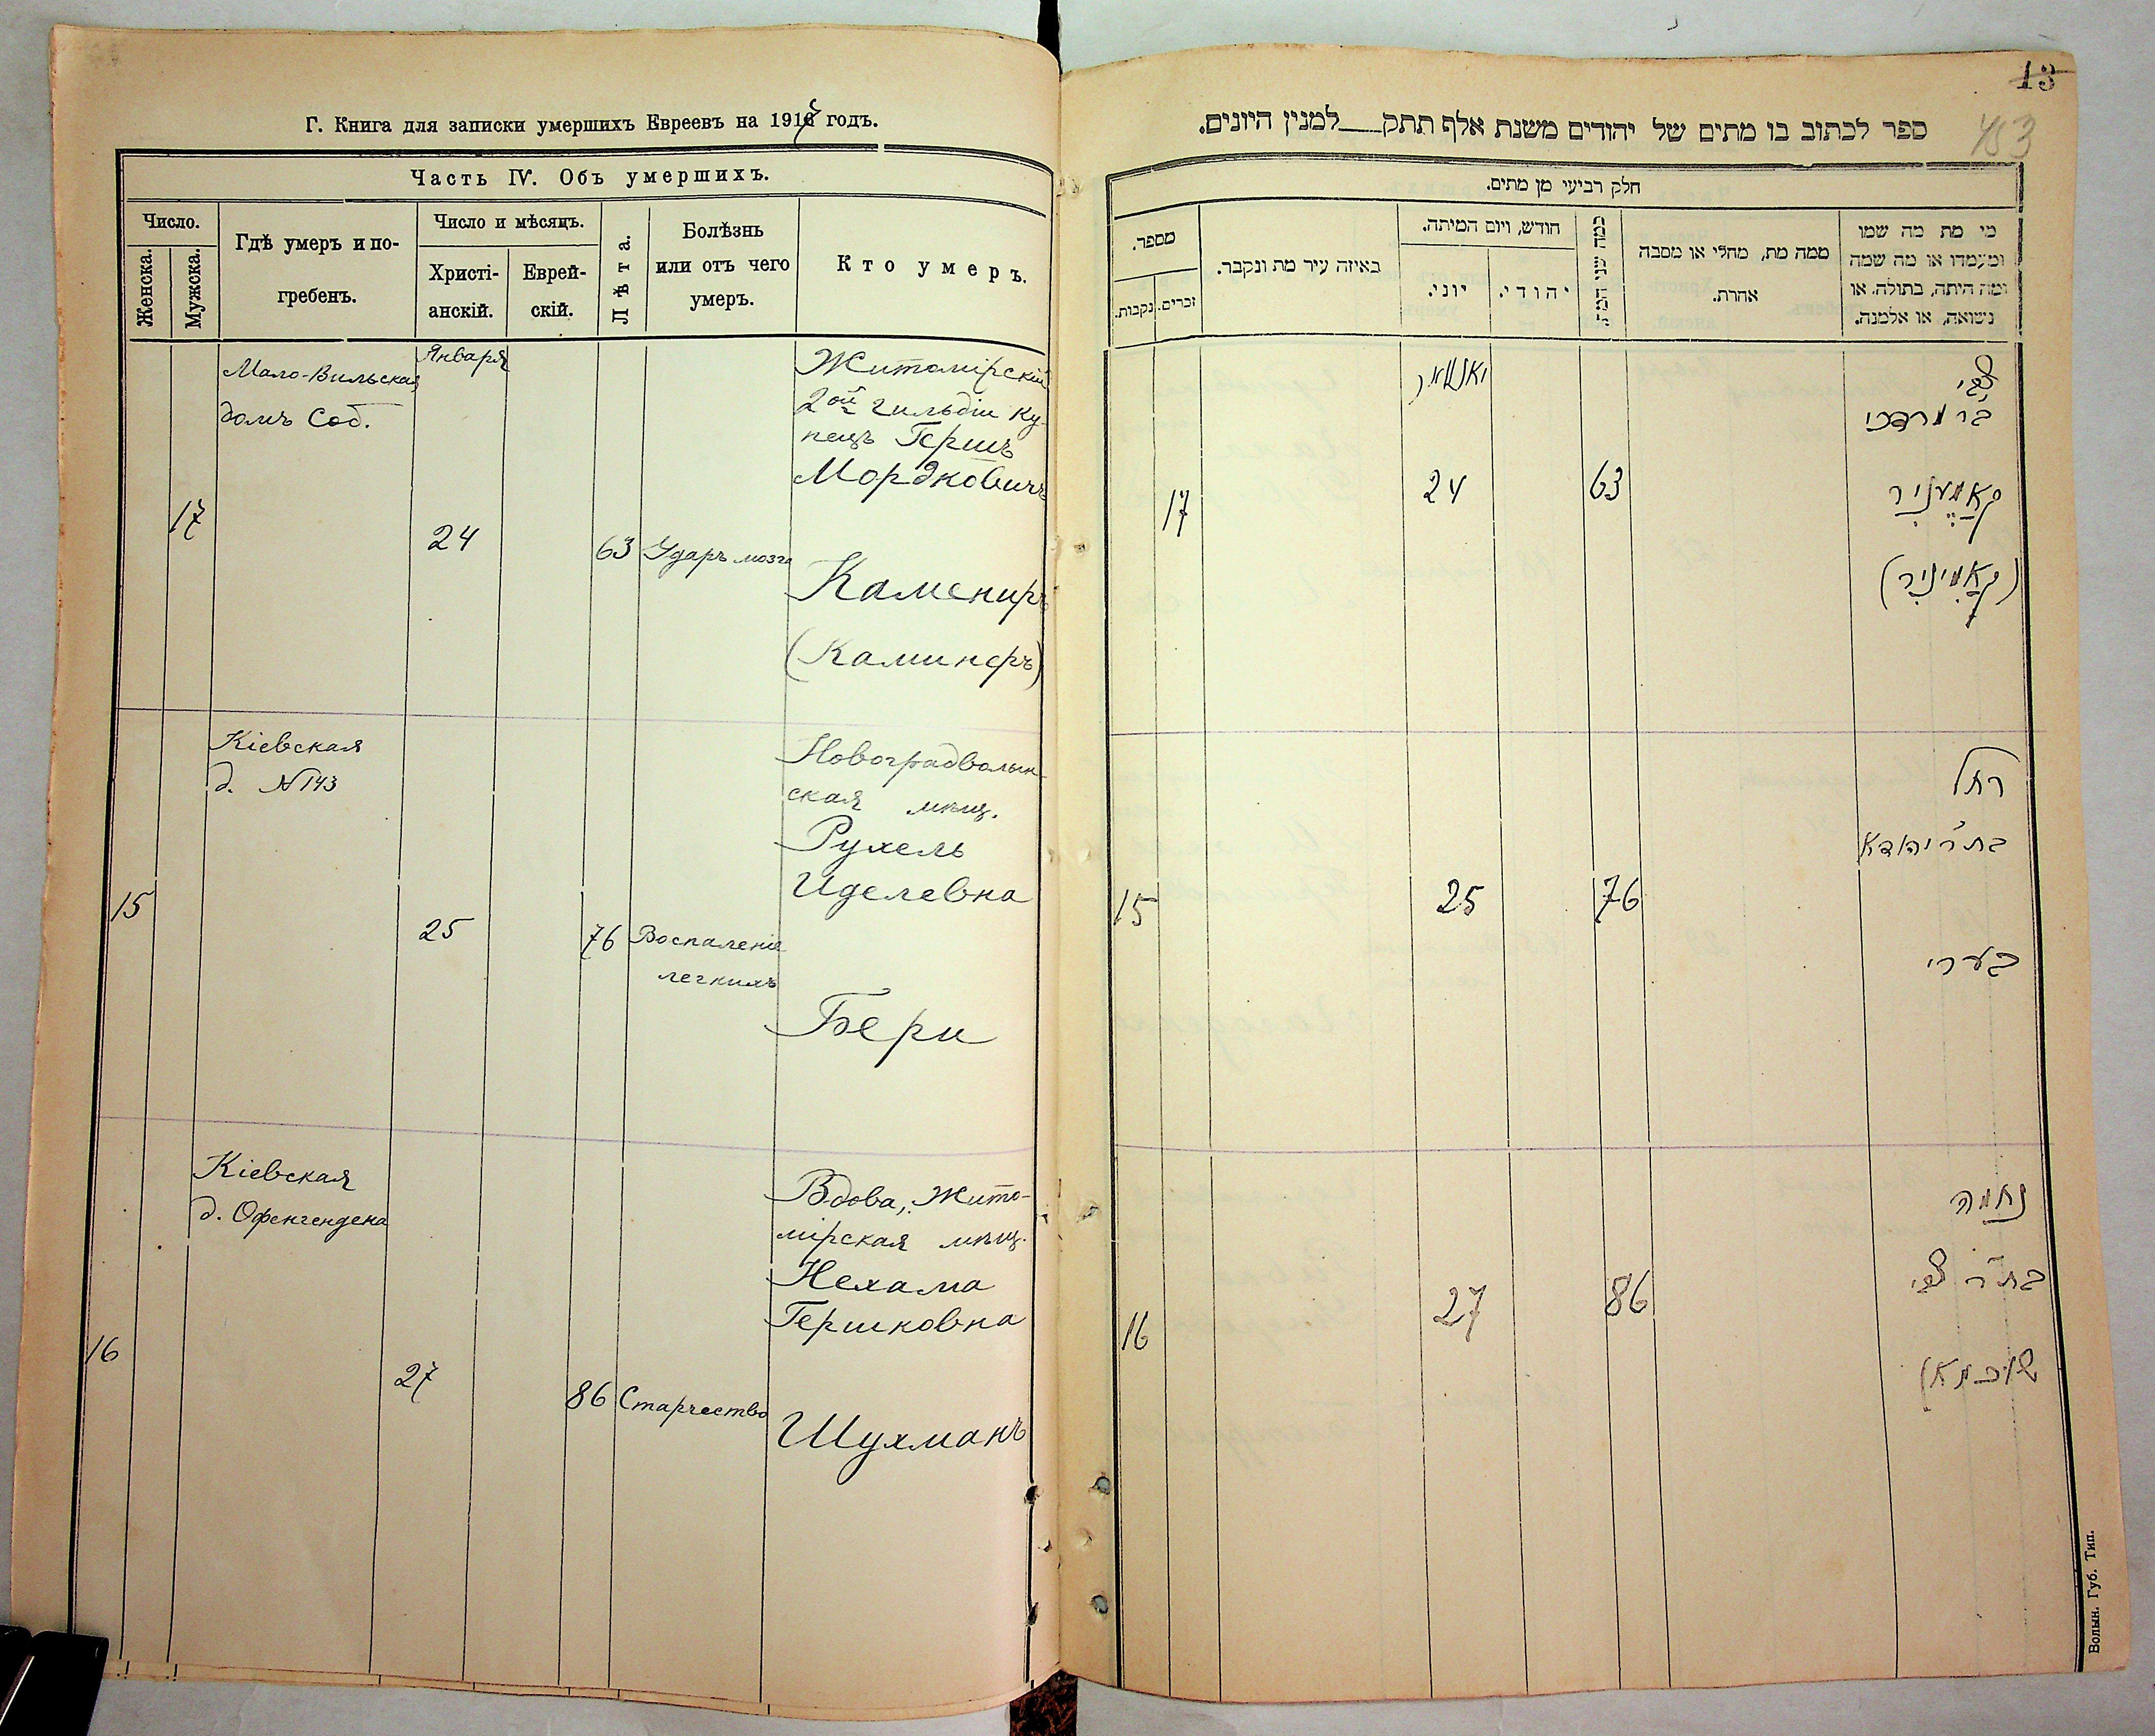 Г. Книга для записки умершихъ Евреевъ на 191 годъ.
Часть IV. Объ умершихъ.
Число.
Женска.
Мужска.
Гдѣ умеръ и по-
гребенъ.
Число и мѣсяцъ.
Христі-
анскій.
Еврей-
скій.
Лѣта.
Болѣзнь
или отъ чего
умеръ.
Кто умеръ.
Мало-Вильская
домъ Соб.
17
Января
24
63
Ударъ мозга
Житомірскій
2ой гильдіи ку-
пецъ Гершъ
Мордковичъ
Камениръ
(Каминеръ)
Кіевская
д. №143
15
25
76
Воспаленіе
легкихъ
Новоградволын-
ская мѣщ.
Рухель
Иделевна
Бери
Кіевская
д. Офенгендена
16
27
86
Старчество
Вдова, Жито-
мірская мѣщ.
Нехама
Гершковна
Шухманъ
13
453
ספר לכתוב בו מתים של יהודים משנת אלף תתק למנין היונים.
חלק רביעי מן מתים.
מספר.
נקבות.
זכרים.
באיזה עיר מת ונקבר.
חודש, ויום המיתה.
יוני.
יהודי.
כמה שני המת
ממה מת, מחלי או מסבה
אחרת.
מי מת מה שמו
ומעמדו או מה שמה
ומה היתה, בתולה, או
נשואה, או אלמנה.
17
יאנואר
24
63
צבי
בר מרדכי
קאמעניר
(קאמיניר)
15
25
76
רחל
בת ר' יהודא
בערי
16
27
86
נחמה
בת ר' צבי
שוכמאן
Волын. Губ. Тип.